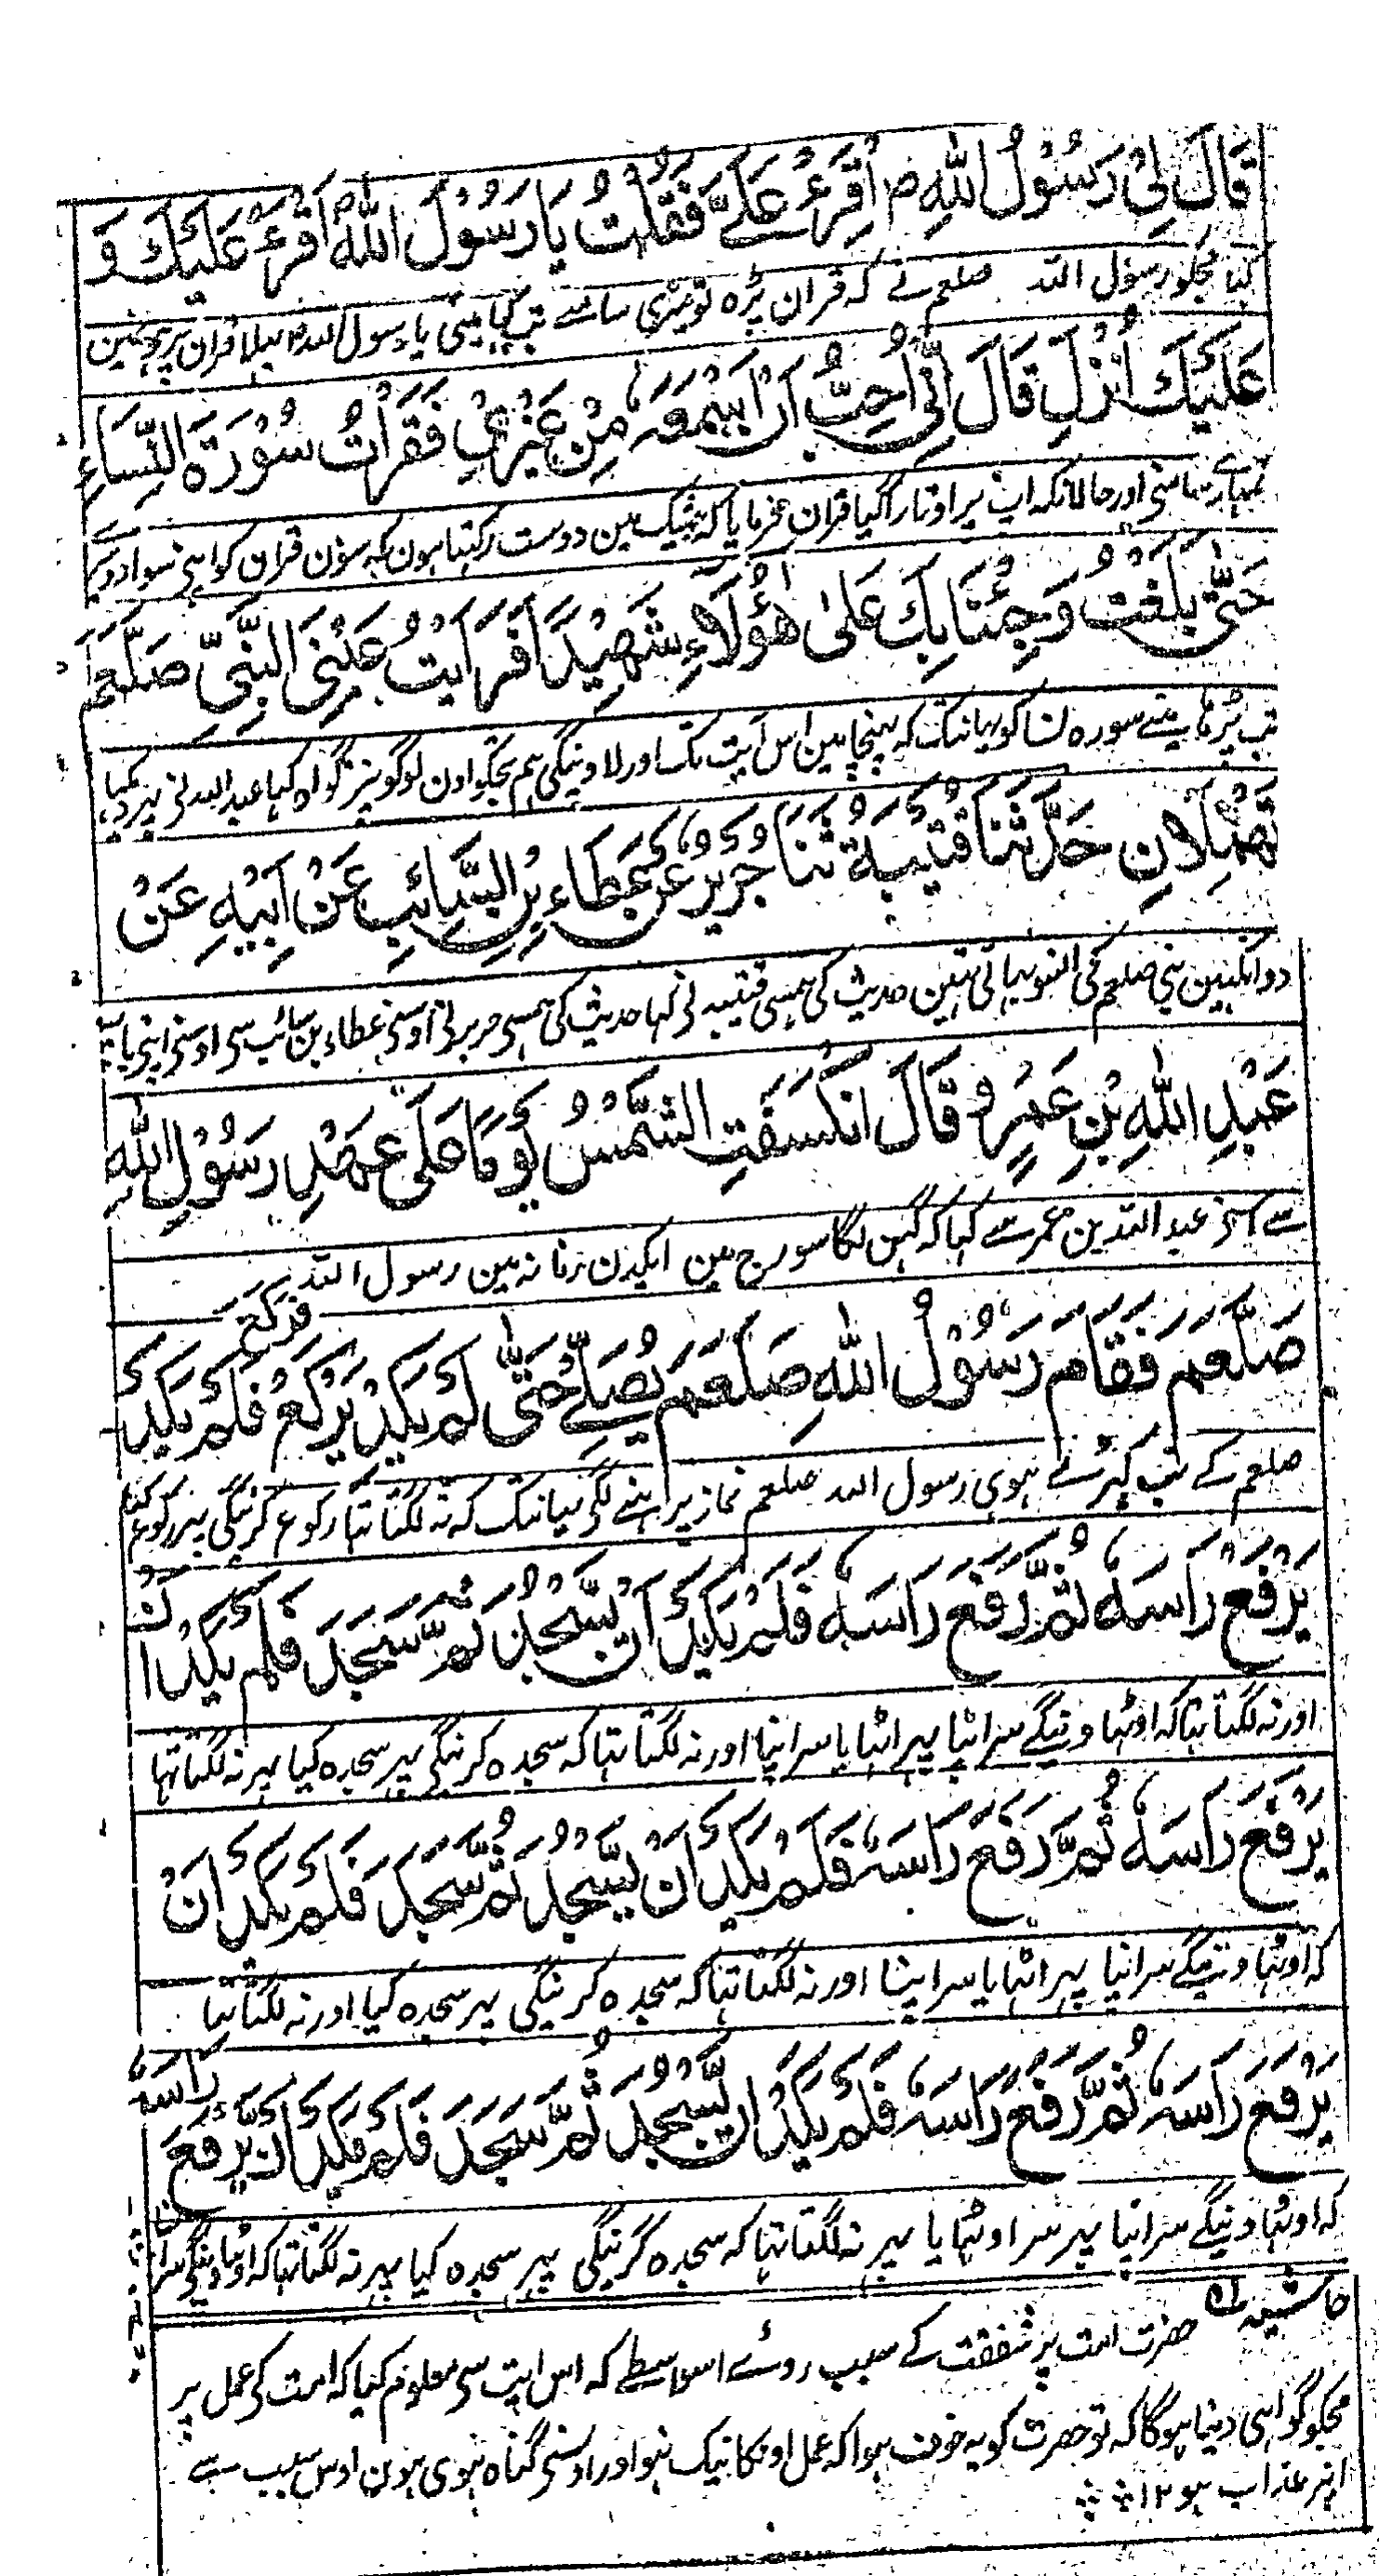 قَالَ لِیْ رَسُوْلُ اللّٰهِ ص اَقْرِءْ عَلَیَّ فَقُلْتُ یَا رَسُوْلَ اللّٰهِ اَقْرَءُ عَلَیْكَ وَ
کہا مجکو رسول اللہ صلعم نے کہ قران پڑہ تو میری سامنے تب کہا مینی یا رسول اللہ بہلا قران پڑہون مین
عَلَیْكَ اُنْزِلَ قَالَ اِنِّیْ اُحِبُّ اَنْ اَسْمَعَهٗ مِنْ غَیْرِیْ فَقَرَأْتُ سُوْرَةَ النِّسَاءِ
تمہارے سامنی اور حالانکہ اپ پر اوتارا گیا قران فرمایا کہ ٹہیک مین دوست رکہتا ہون کہ سنون قران کو اپنی سوا
حَتّٰی بَلَغْتُ وَجِئْنَا بِكَ عَلٰی هٰؤُلَاءِ شَهِیْدًا فَرَاَیْتُ عَیْنَیِ النَّبِیِّ صَلْعَمْ
تب پڑہا مینے سورہ نسا کو یہانتک کہ پہنچا مین اس آیت تک اور لاوینگی ہم تجکو اون لوگو نپر گواہ کہا عبداللہ نی پہر دیکہا
تَهْمِلَانِ حَدَّثَنَا قُتَیْبَةُ ثَنَا جَرِیْرٌ عَنْ عَطَاءِ بْنِ السَّائِبِ عَنْ اَبِیْهِ عَنْ
دو انکہین نبی صلعم کی انسو بہاتی تہین حدیث کی ہمسی قتیبہ نی کہا حدیث کی ہمسی جریر نی اوسنی عطاء بن سائب سی اوسنی اپنی باپ
عَبْدِ اللّٰهِ بْنِ عَمْرٍو قَالَ انْكَسَفَتِ الشَّمْسُ یَوْمًا عَلٰی عَهْدِ رَسُوْلِ اللّٰهِ
سے اسنی عبد اللہ بن عمر سے کہا کہ گہن لگا سورج مین ایکدن زمانہ مین رسول اللہ
صَلْعَمْ فَقَامَ رَسُوْلُ اللّٰهِ صَلْعَمْ یُصَلِّیْ حَتّٰی لَمْ یَكَدْ یَرْكَعُ فَلَمْ یَكَدْ
فَرَكَعَ
صلعم کے تب کہڑے ہوی رسول اللہ صلعم نماز پڑہنے لگی یہانتک کہ نہ لگتا تہا رکوع کرینگی پہر رکوع کیا
یَرْفَعُ رَاْسَهٗ ثُمَّ رَفَعَ رَاْسَهٗ فَلَمْ یَكَدْ اَنْ یَّسْجُدَ ثُمَّ سَجَدَ فَلَمْ یَكَدْ اَنْ
اور نہ لگتا تہا کہ اوٹہاوینگے سر اپنا پہر اٹہایا سر اپنا اور نہ لگتا تہا کہ سجدہ کرینگی پہر سجدہ کیا پہر نہ لگتا تہا
یَرْفَعَ رَاْسَهٗ ثُمَّ رَفَعَ رَاْسَهٗ فَلَمْ یَكَدْ اَنْ یَّسْجُدَ ثُمَّ سَجَدَ فَلَمْ یَكَدْ اَنْ
کہ اوٹہاوینگے سر اپنا پہر اٹہایا سر اپنا اور نہ لگتا تہا کہ سجدہ کرینگی پہر سجدہ کیا اور نہ لگتا تہا
یَرْفَعَ رَاْسَهٗ ثُمَّ رَفَعَ رَاْسَهٗ فَلَمْ یَكَدْ اَنْ یَّسْجُدَ ثُمَّ سَجَدَ فَلَمْ یَكَدْ اَنْ یَّرْفَعَ رَاْسَهٗ
کہ اوٹہاوینگے سر اپنا پہر سر اوٹہایا پہر نہ لگتا تہا کہ سجدہ کرینگی پہر سجدہ کیا پہر نہ لگتا تہا کہ اوٹہاوینگی سر
حاشیہ حضرت امت پر شفقت کے سبب روئے اسواسطے کہ اس ایت سی معلوم کیا کہ امت کی عمل پر
مجکو گواہی دینا ہوگا کہ تو حضرت کو یہ خوف ہوا کہ عمل اونکا نیک نہو اور اوسنی گناہ ہوی ہون اوس سبب سے
انپر عذاب ہو ۱۲